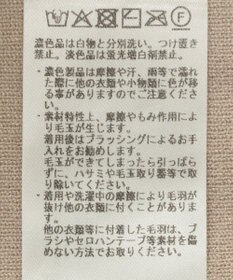 濃色品は白物と分別洗い。つけ置き
禁止。淡色品は蛍光増白剤禁止。
・濃色製品は摩擦や汗、雨等で濡れ
た際に他の衣類や小物類に色が移
る事がありますのでご注意くださ
い。
・素材特性上、摩擦やもみ作用によ
り毛玉が生じます。
着用後はブラッシングによるお手
入れをお勧めします。
毛玉ができてしまったら引っぱら
ずに、ハサミや毛玉取り器等で取
り除いてください。
・着用や洗濯中の摩擦により毛羽が
抜け他の衣類に付くことがありま
す。
他の衣類等に付着した毛羽は、ブ
ラシやセロハンテープ等素材を傷
めない方法でお取りください。